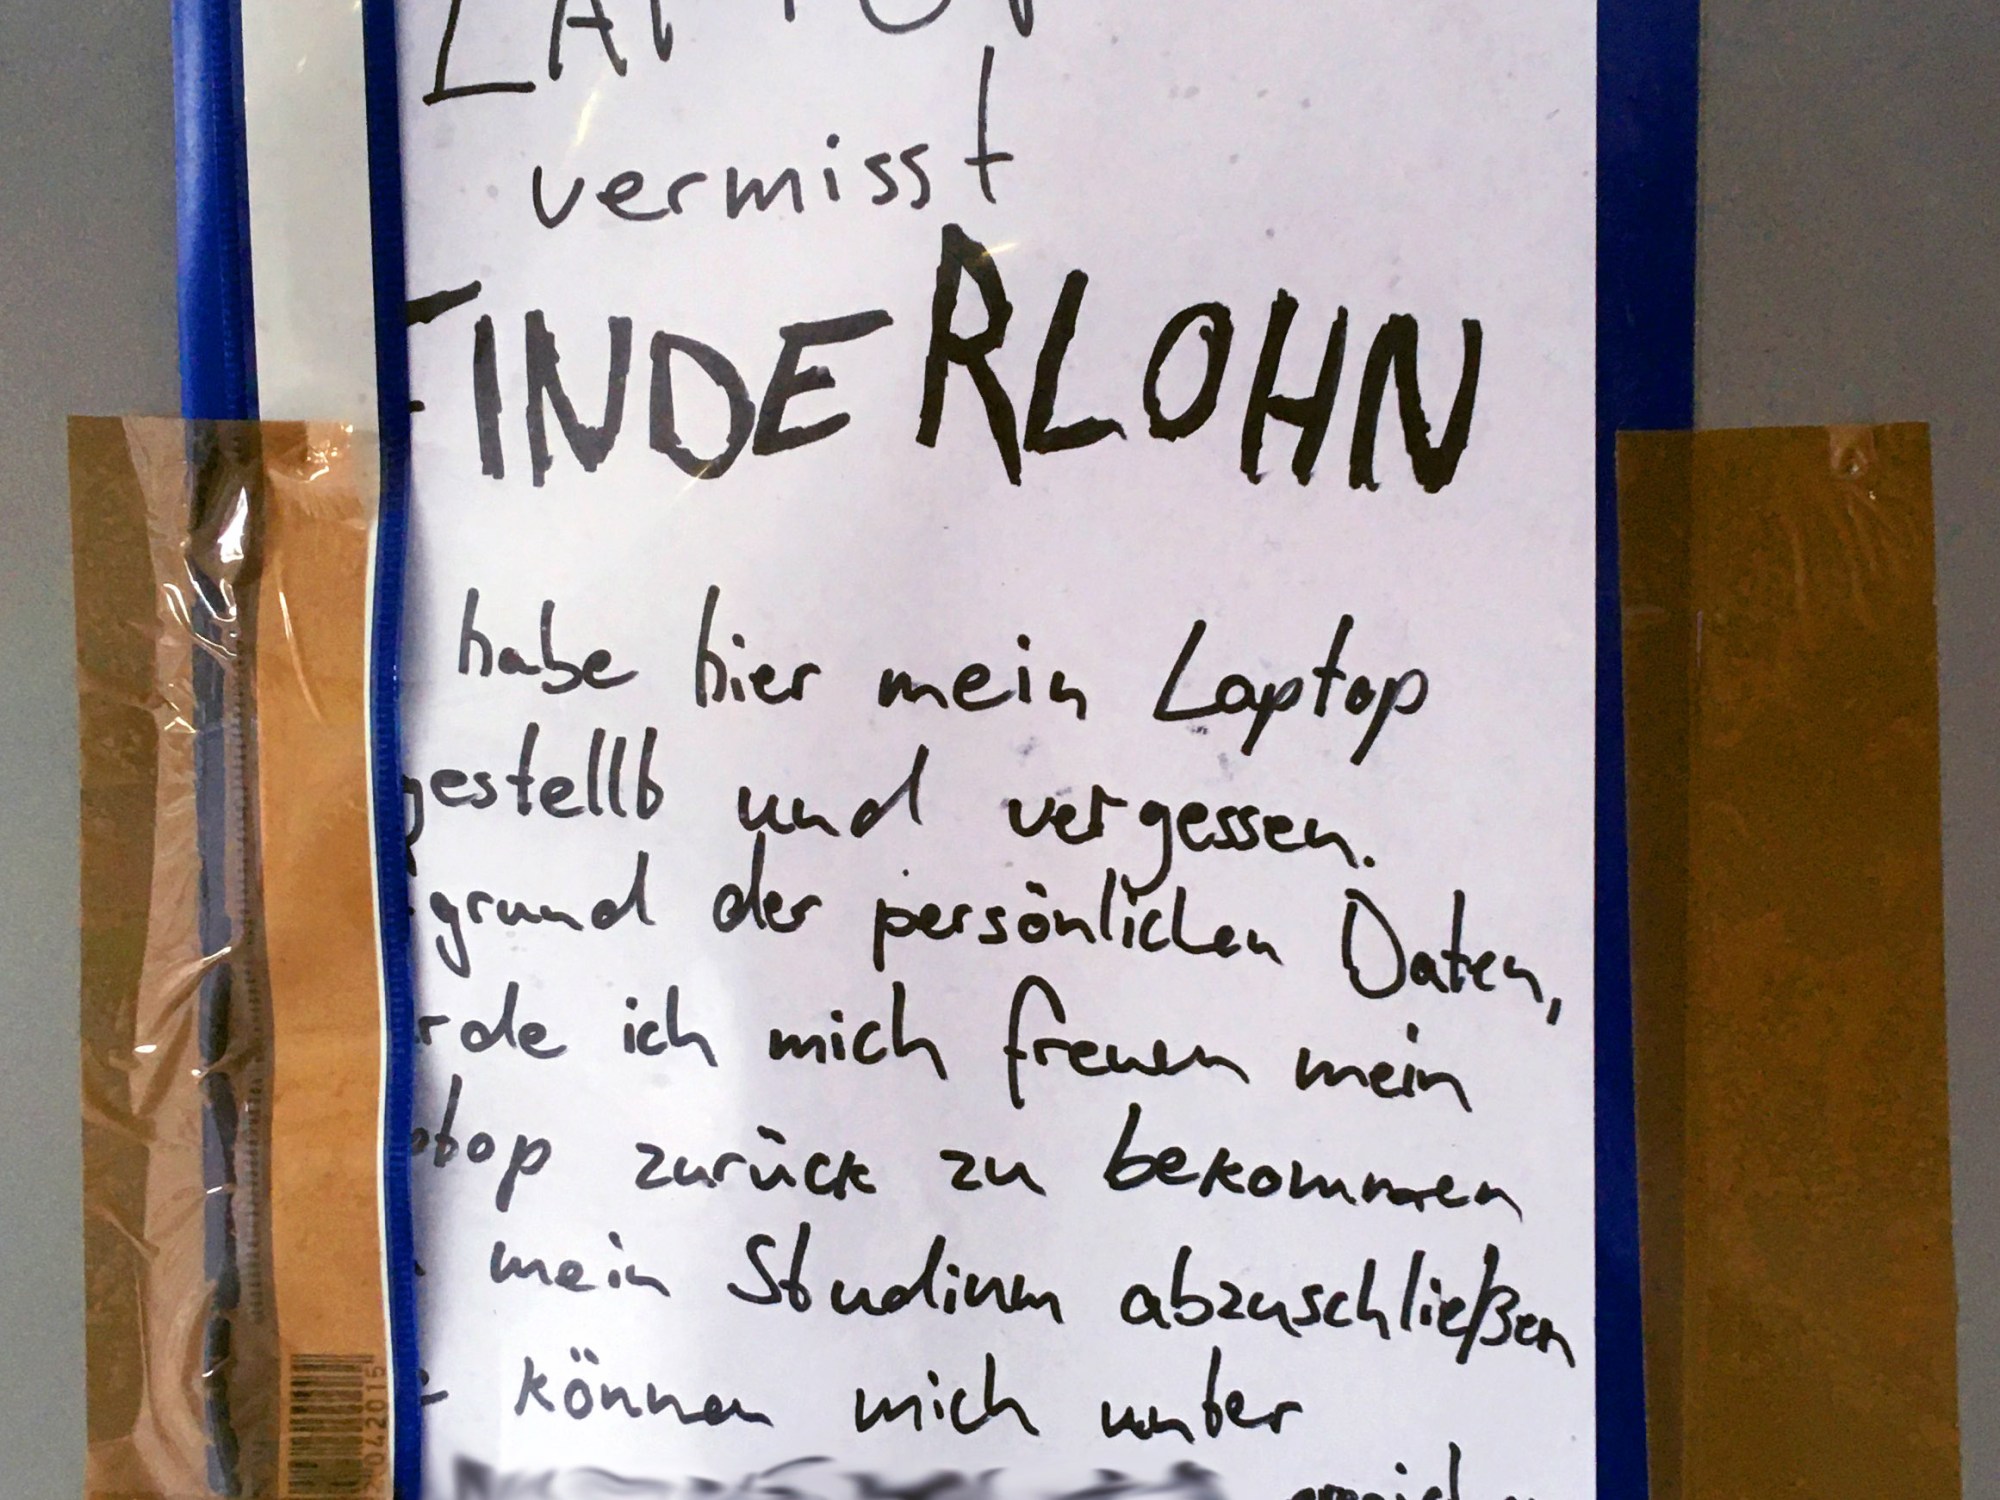 LAPTOP
vermisst
FINDERLOHN
habe hier mein Laptop
gestellt und vergessen.
grund der persönlichen Daten,
rde ich mich freuen mein
ptop zurück zu bekommen
mein Studium abzuschließen
können mich unter
2042015